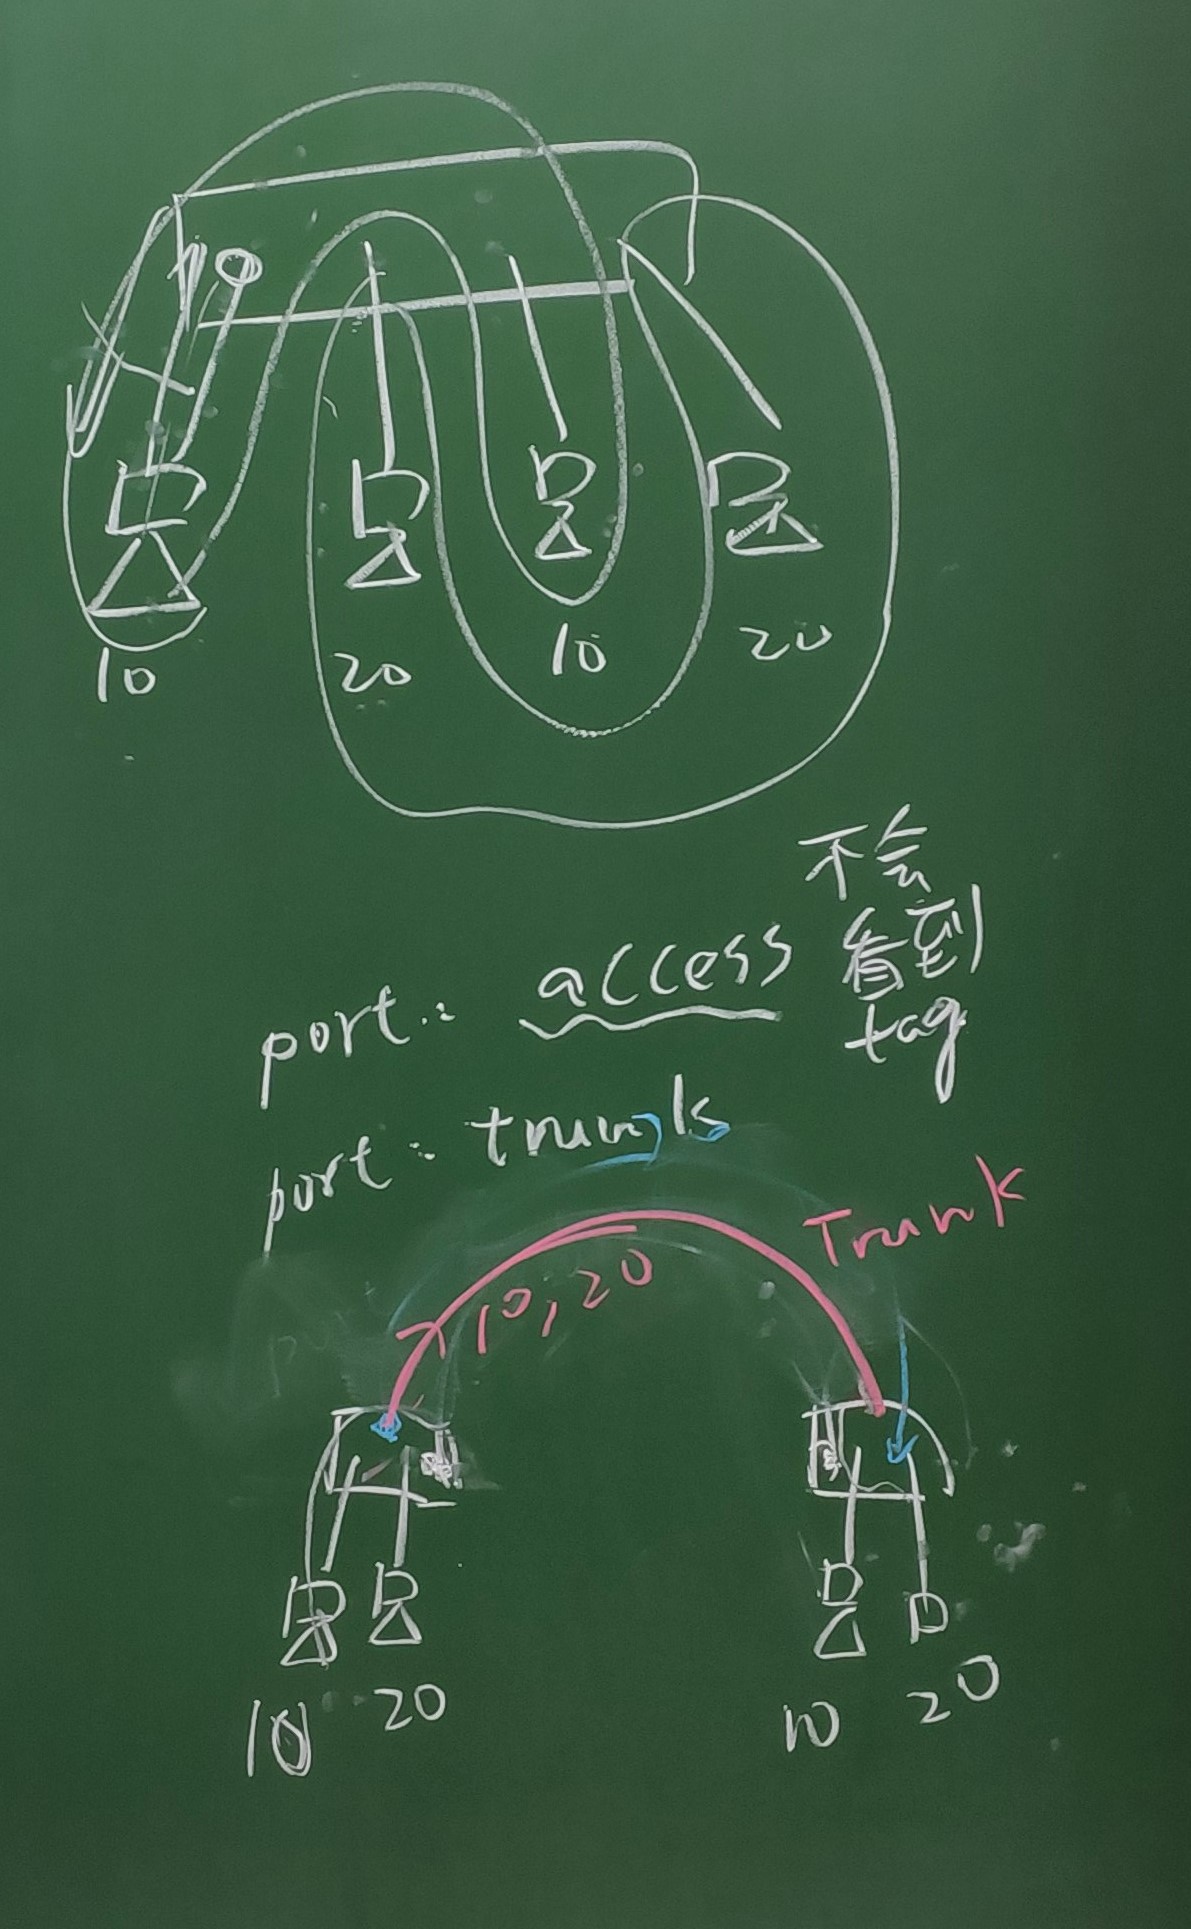 10 20 10 20
port: access 不会
看到
tag
port: trunk
Trunk
10,20
10 20 10 20